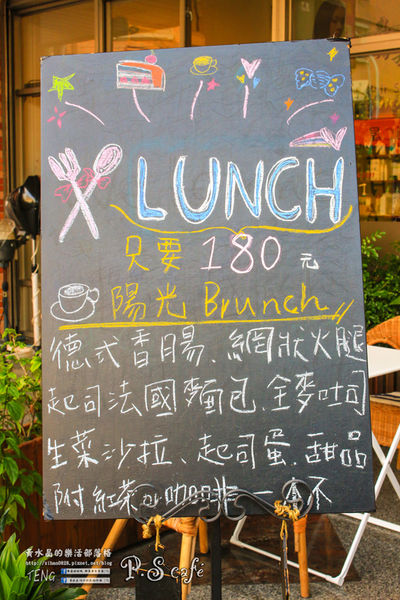 LUNCH
只要 180 元
陽光 Brunch
德式香腸、網狀火腿
起司法國麵包、全麥吐司
生菜沙拉、起司蛋、甜品
附紅茶or咖啡 一
黃水晶的樂活部落格
TENG
P.S café